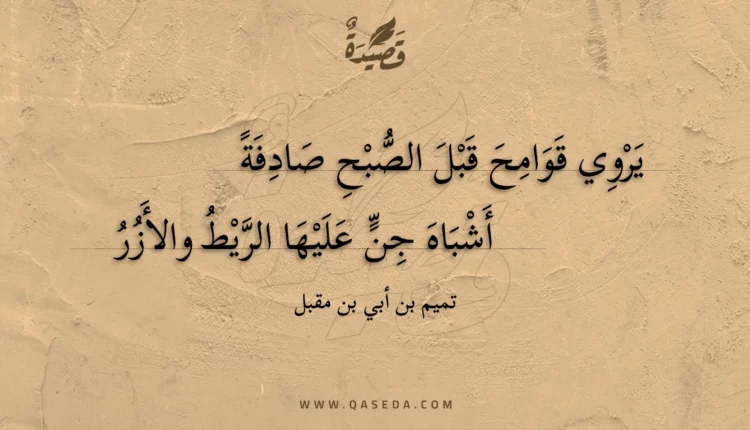 قَصِيْدَةٌ
يَرْوِي قَوَامِحَ قَبْلَ الصُّبْحِ صَادِفَةً
أَشْبَاهَ جِنٍّ عَلَيْهَا الرَّيْطُ والأَزُرُ
تميم بن أبي بن مقبل
WWW.QASEDA.COM